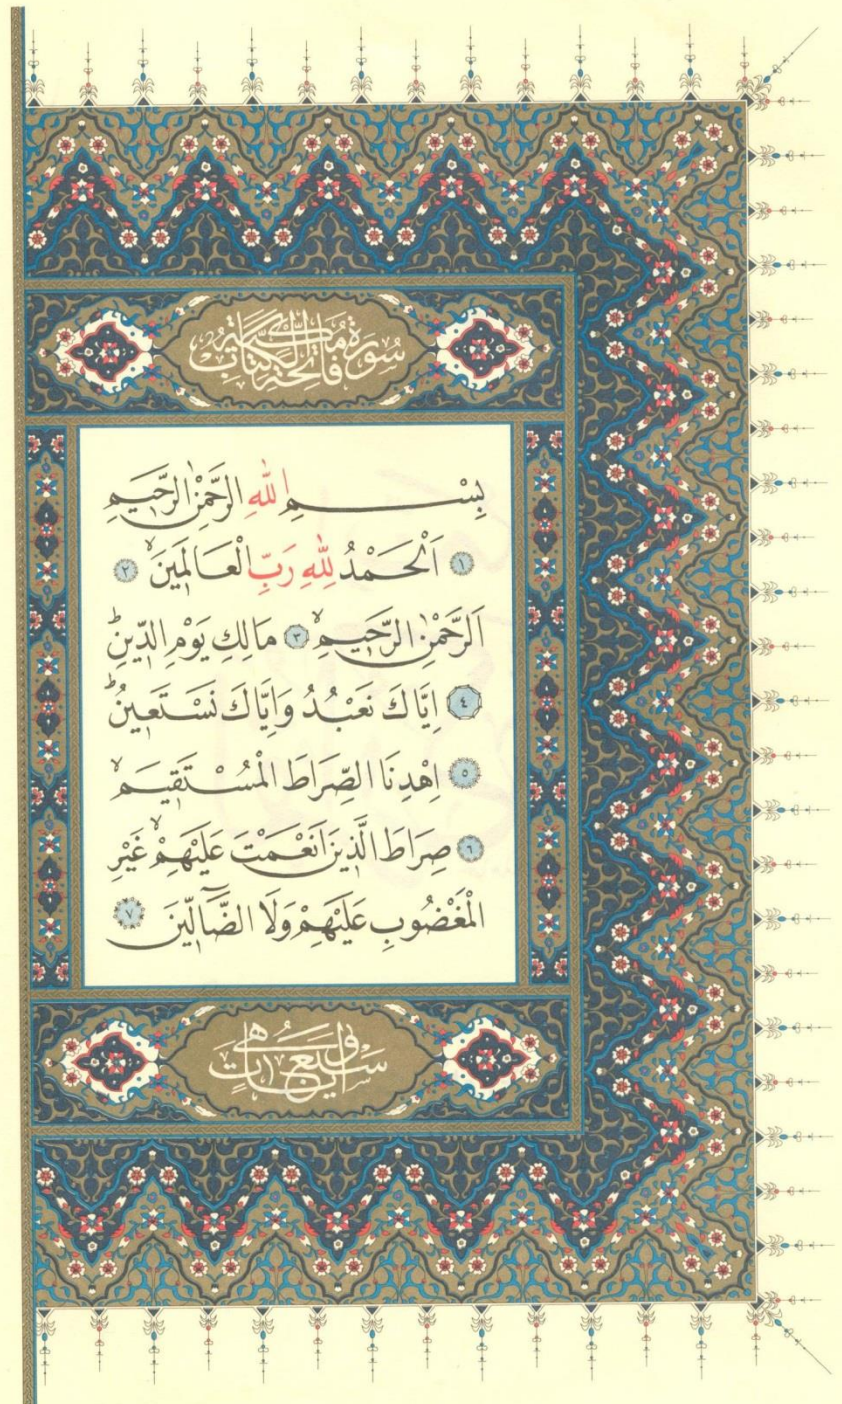 سُورَةُ فَاتِحَةِ الْكِتَابِ مَكِّيَّةٌ
بِسْمِ اللّٰهِ الرَّحْمٰنِ الرَّح۪يمِ
﴿١﴾ اَلْحَمْدُ لِلّٰهِ رَبِّ الْعَالَم۪ينَۙ ﴿٢﴾
اَلرَّحْمٰنِ الرَّح۪يمِۙ ﴿٣﴾ مَالِكِ يَوْمِ الدّ۪ينِۜ
﴿٤﴾ اِيَّاكَ نَعْبُدُ وَاِيَّاكَ نَسْتَع۪ينُۜ
﴿٥﴾ اِهْدِنَا الصِّرَاطَ الْمُسْتَق۪يمَۙ
﴿٦﴾ صِرَاطَ الَّذ۪ينَ اَنْعَمْتَ عَلَيْهِمْۙ غَيْرِ
الْمَغْضُوبِ عَلَيْهِمْ وَلَا الضَّٓالّ۪ينَ ﴿٧﴾
وَهِيَ سَبْعُ اٰيَاتٍ